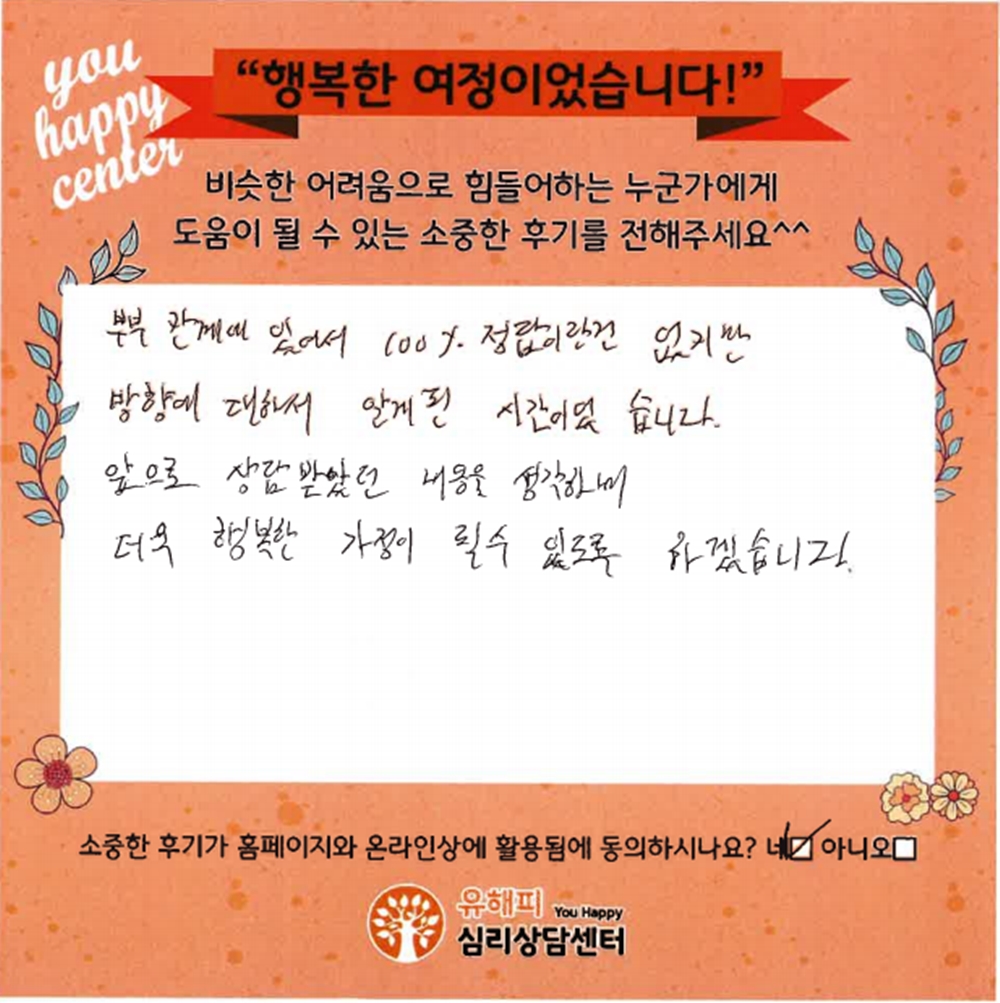 you
happy
center
“행복한 여정이었습니다!”
비슷한 어려움으로 힘들어하는 누군가에게
도움이 될 수 있는 소중한 후기를 전해주세요^^
부부 관계에 있어서 100%. 정답이란건 없지만
방향에 대해서 알게 된 시간이었 습니다.
앞으로 상담 받았던 내용을 생각하며
더욱 행복한 가정이 될수 있도록 하겠습니다.
소중한 후기가 홈페이지와 온라인상에 활용됨에 동의하시나요? 네☑ 아니오□
유해피 You Happy
심리상담센터